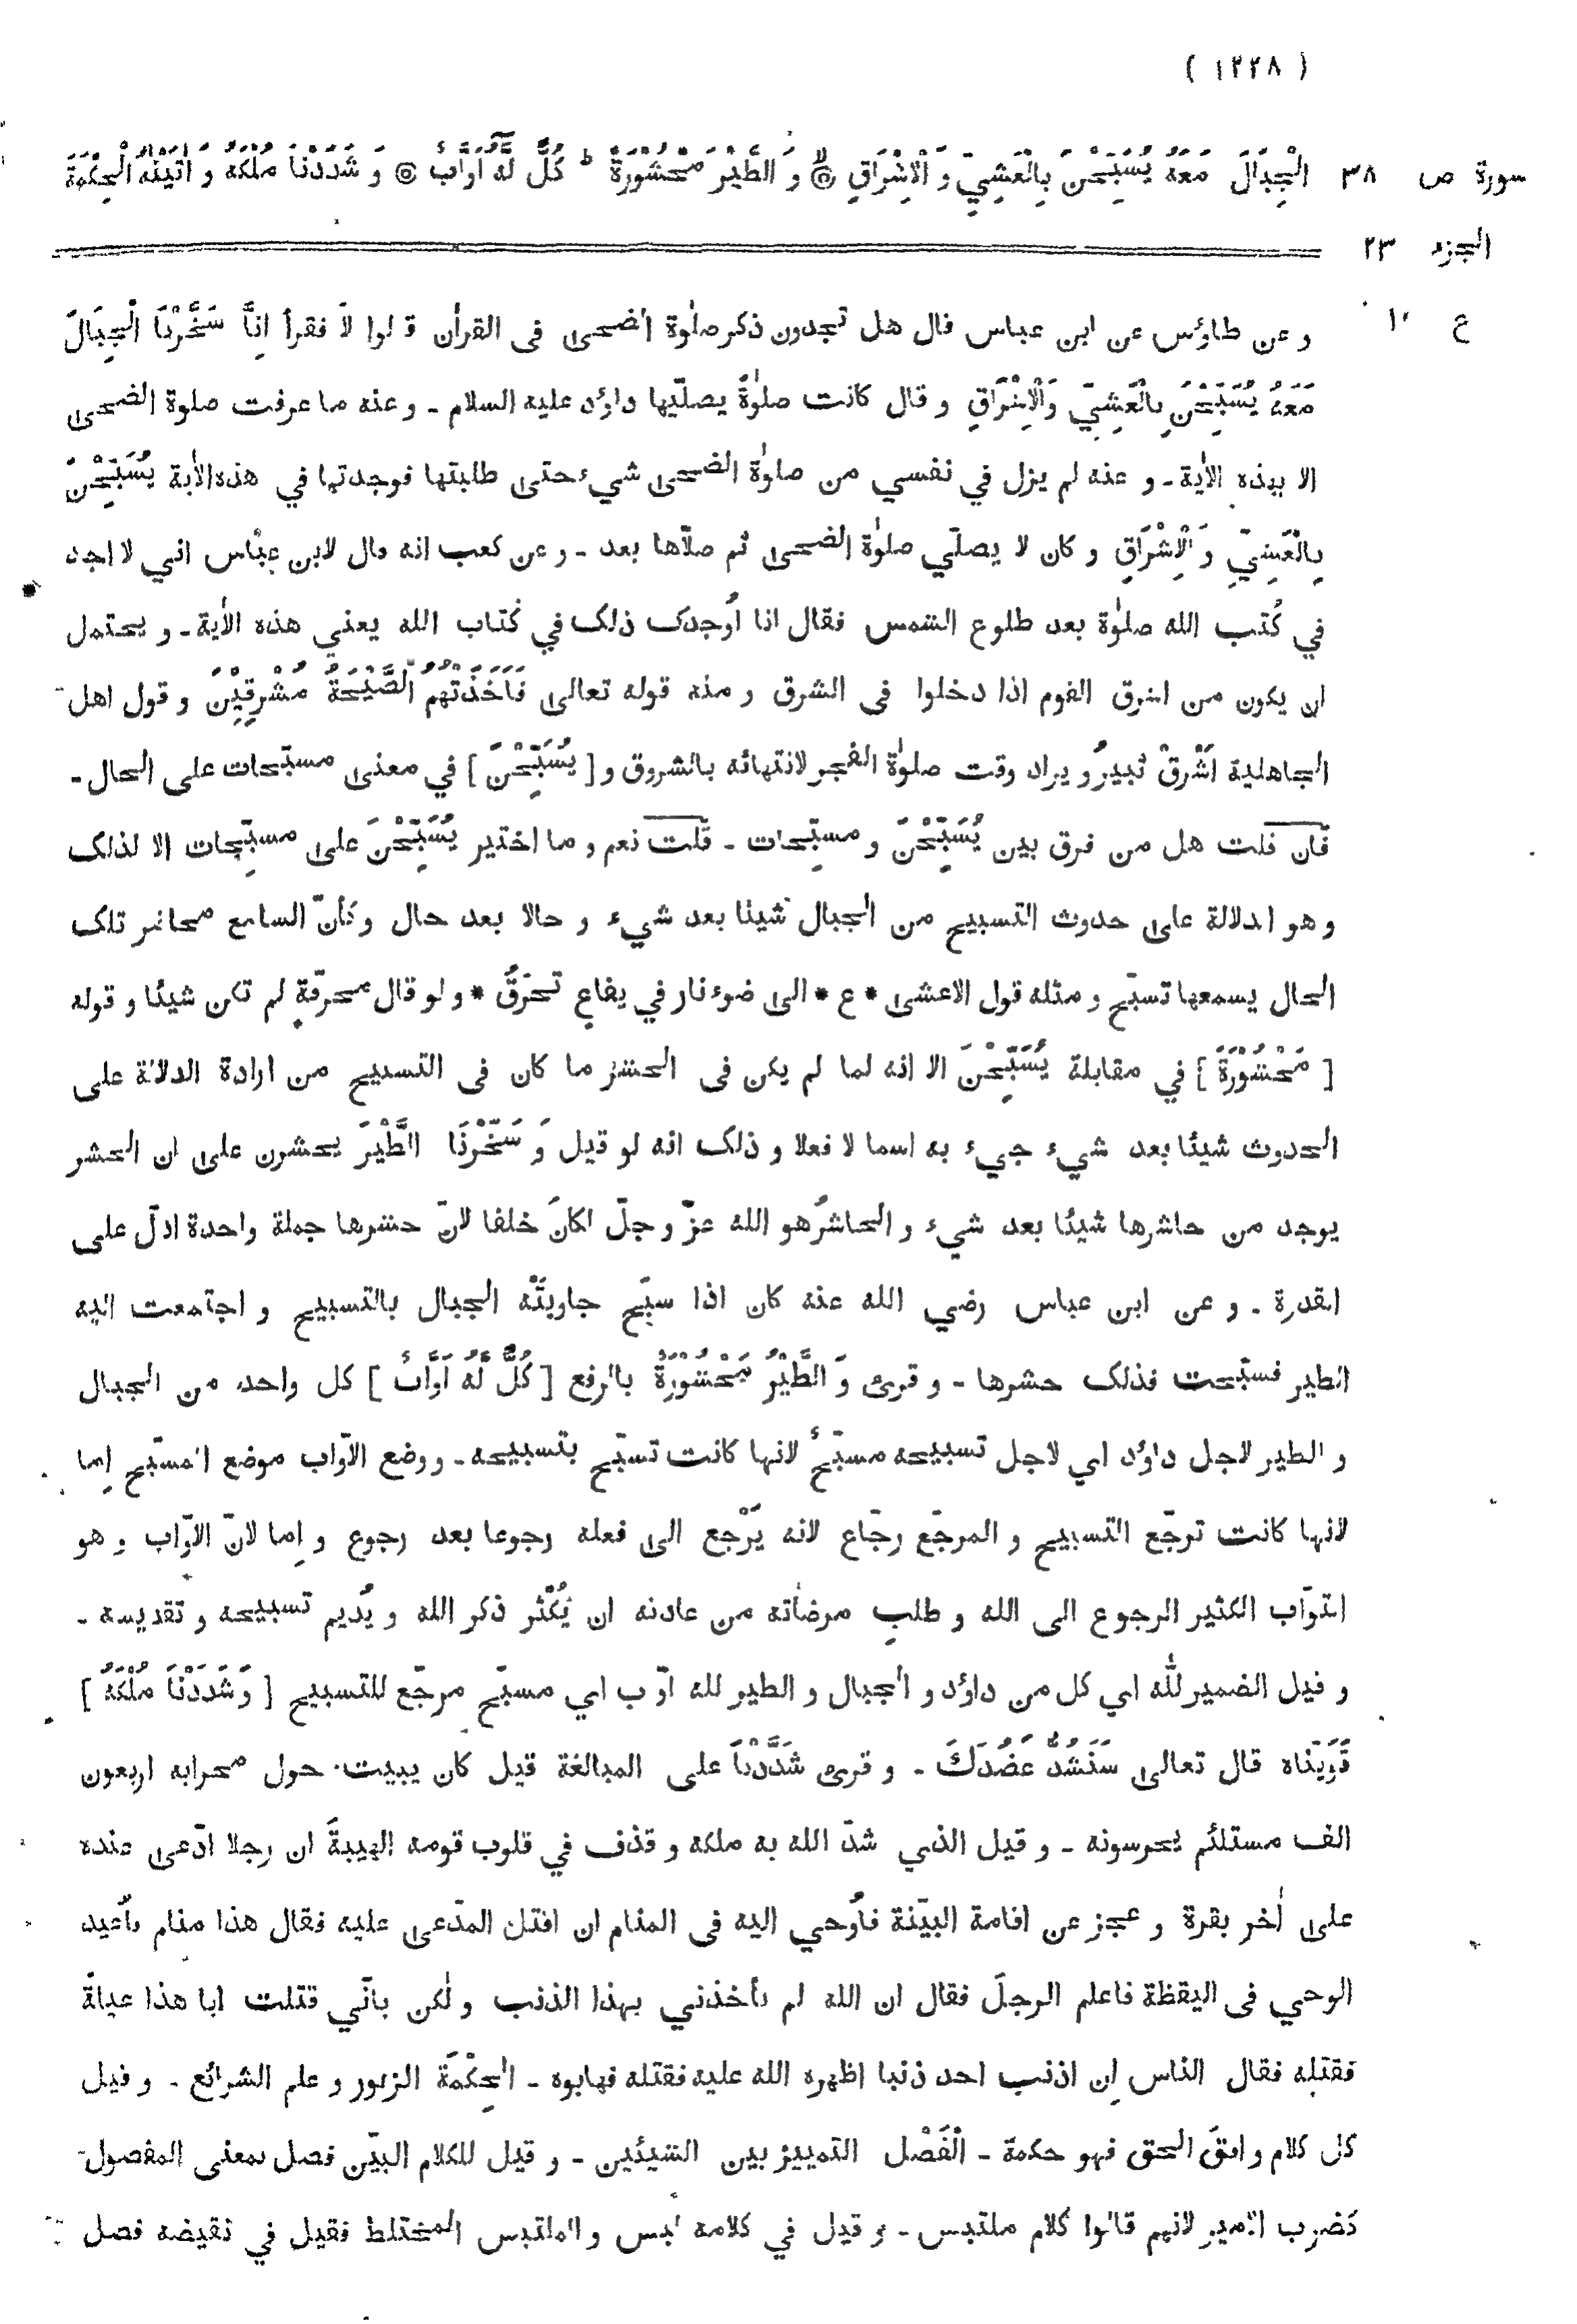 ( ١٢٢٨ )
سورة ص ٣٨ الْجِبَالَ مَعَهُ يُسَبِّحْنَ بِالْعَشِيِّ وَ الْاِشْرَاقِ ۞ وَ الطَّيْرَ مَحْشُوْرَةً ط كُلٌّ لَّهُ اَوَّابٌ ۞ وَ شَدَدْنَا مُلْكَهُ وَ اٰتَيْنٰهُ الْحِكْمَةَ
الجزء ٢٣
ع ١٠ و عن طاوٗس عن ابن عباس قال هل تجدون ذكر صلٰوة الضحى فى القراٰن قالوا لا فقرأ اِنَّا سَخَّرْنَا الْجِبَالَ
مَعَهُ يُسَبِّحْنَ بِالْعَشِيِّ وَالْاِشْرَاقِ و قال كانت صلٰوةً يصلّيها داوٗد عليه السلام ـ و عنه ما عرفت صلوة الضحى
الا بهذه الاٰية ـ و عنه لم يزل في نفسي من صلٰوة الضحى شيء حتى طلبتها فوجدتها في هذه الاٰية يُسَبِّحْنَ
بِالْعَشِيِّ وَ الْاِشْرَاقِ و كان لا يصلّي صلٰوة الضحى ثم صلّاها بعد ـ و عن كعب انه قال لابن عبّاس اني لا اجد
في كُتب الله صلٰوة بعد طلوع الشمس فقال انا اُوجدك ذلك في كتاب الله يعني هذه الاٰية ـ و يحتمل
ان يكون من اشرق القوم اذا دخلوا فى الشرق و منه قوله تعالى فَاَخَذَتْهُمُ الصَّيْحَةُ مُشْرِقِيْنَ و قول اهل
الجاهلية اَشْرِقْ ثبيرُ و يراد وقت صلٰوة الفجر لانتهائه بالشروق و [ يُسَبِّحْنَ ] في معنى مسبّحات على الحال ـ
فان قلت هل من فرق بين يُسَبِّحْنَ و مسبّحات ـ قلت نعم و ما اختير يُسَبِّحْنَ على مسبّحات الا لذلك
و هو الدلالة على حدوث التسبيح من الجبال شيئا بعد شيء و حالا بعد حال و كأنّ السامع محاضر تلك
الحال يسمعها تسبّح و مثله قول الاعشى * ع * الى ضوء نار في يفاع تحرّقُ * و لو قال محرقة لم تكن شيئا و قوله
[ مَحْشُوْرَةً ] في مقابلة يُسَبِّحْنَ الا انه لما لم يكن فى الحشر ما كان فى التسبيح من ارادة الدلالة على
الحدوث شيئا بعد شيء جيء به اسما لا فعلا و ذلك انه لو قيل وَ سَخَّرْنَا الطَّيْرَ يحشرن على ان الحشر
يوجد من حاشرها شيئا بعد شيء و الحاشرُ هو الله عزّ و جلّ لكانَ خلفا لانّ حشرها جملة واحدة ادلّ على
القدرة ـ و عن ابن عباس رضي الله عنه كان اذا سبّح جاوبتْه الجبال بالتسبيح و اجتمعت اليه
الطير فسبّحت فذلك حشرها ـ و قرئ وَ الطَّيْرُ مَحْشُوْرَةٌ بالرفع [ كُلٌّ لَّهُ اَوَّابٌ ] كل واحد من الجبال
و الطير لاجل داوٗد اي لاجل تسبيحه مسبّحٌ لانها كانت تسبّح بتسبيحه ـ و وضع الاوّاب موضع المسبّح اِما
لانها كانت ترجّع التسبيح و المرجّع رجّاع لانه يَرْجع الى فعله رجوعا بعد رجوع و اِما لانّ الاوّاب و هو
التوّاب الكثير الرجوع الى الله و طلبِ مرضاته من عادته ان يُكْثر ذكر الله و يُديم تسبيحه و تقديسه ـ
و قيل الضمير للّٰه اي كل من داوٗد و الجبال و الطير لله اوّاب اي مسبّح مرجّع للتسبيح [ وَ شَدَدْنَا مُلْكَهُ ]
قَوَّيناه قال تعالى سَنَشُدُّ عَضُدَكَ ـ و قرئ شَدَّدْنَا على المبالغة قيل كان يبيت حول محرابه اربعون
الف مستلئم يحرسونه ـ و قيل الذي شدّ الله به ملكه و قذف في قلوب قومه الهيبةَ ان رجلا ادّعى عنده
على اٰخر بقرة و عجز عن اقامة البيّنة فاُوحي اليه فى المنام ان اقتل المدّعى عليه فقال هذا منام فاُعيد
الوحي فى اليقظة فاعلم الرجلَ فقال ان الله لم يأخذني بهذا الذنب و لٰكن بانّي قتلت ابا هذا غيلةً
فقتله فقال الناس اِن اذنب احد ذنبا اظهره الله عليه فقتله فهابوه ـ الْحِكْمَةَ الزبور و علم الشرائع ـ و قيل
كل كلام وافقَ الحق فهو حكمة ـ الْفَصْل التمييز بين الشيئين ـ و قيل للكلام البيّن فصل بمعنى المفصول
كضرب الامير لانهم قالوا كلام ملتبس ـ و قيل في كلامه لبس و الملتبس المختلط فقيل في نقيضه فصل